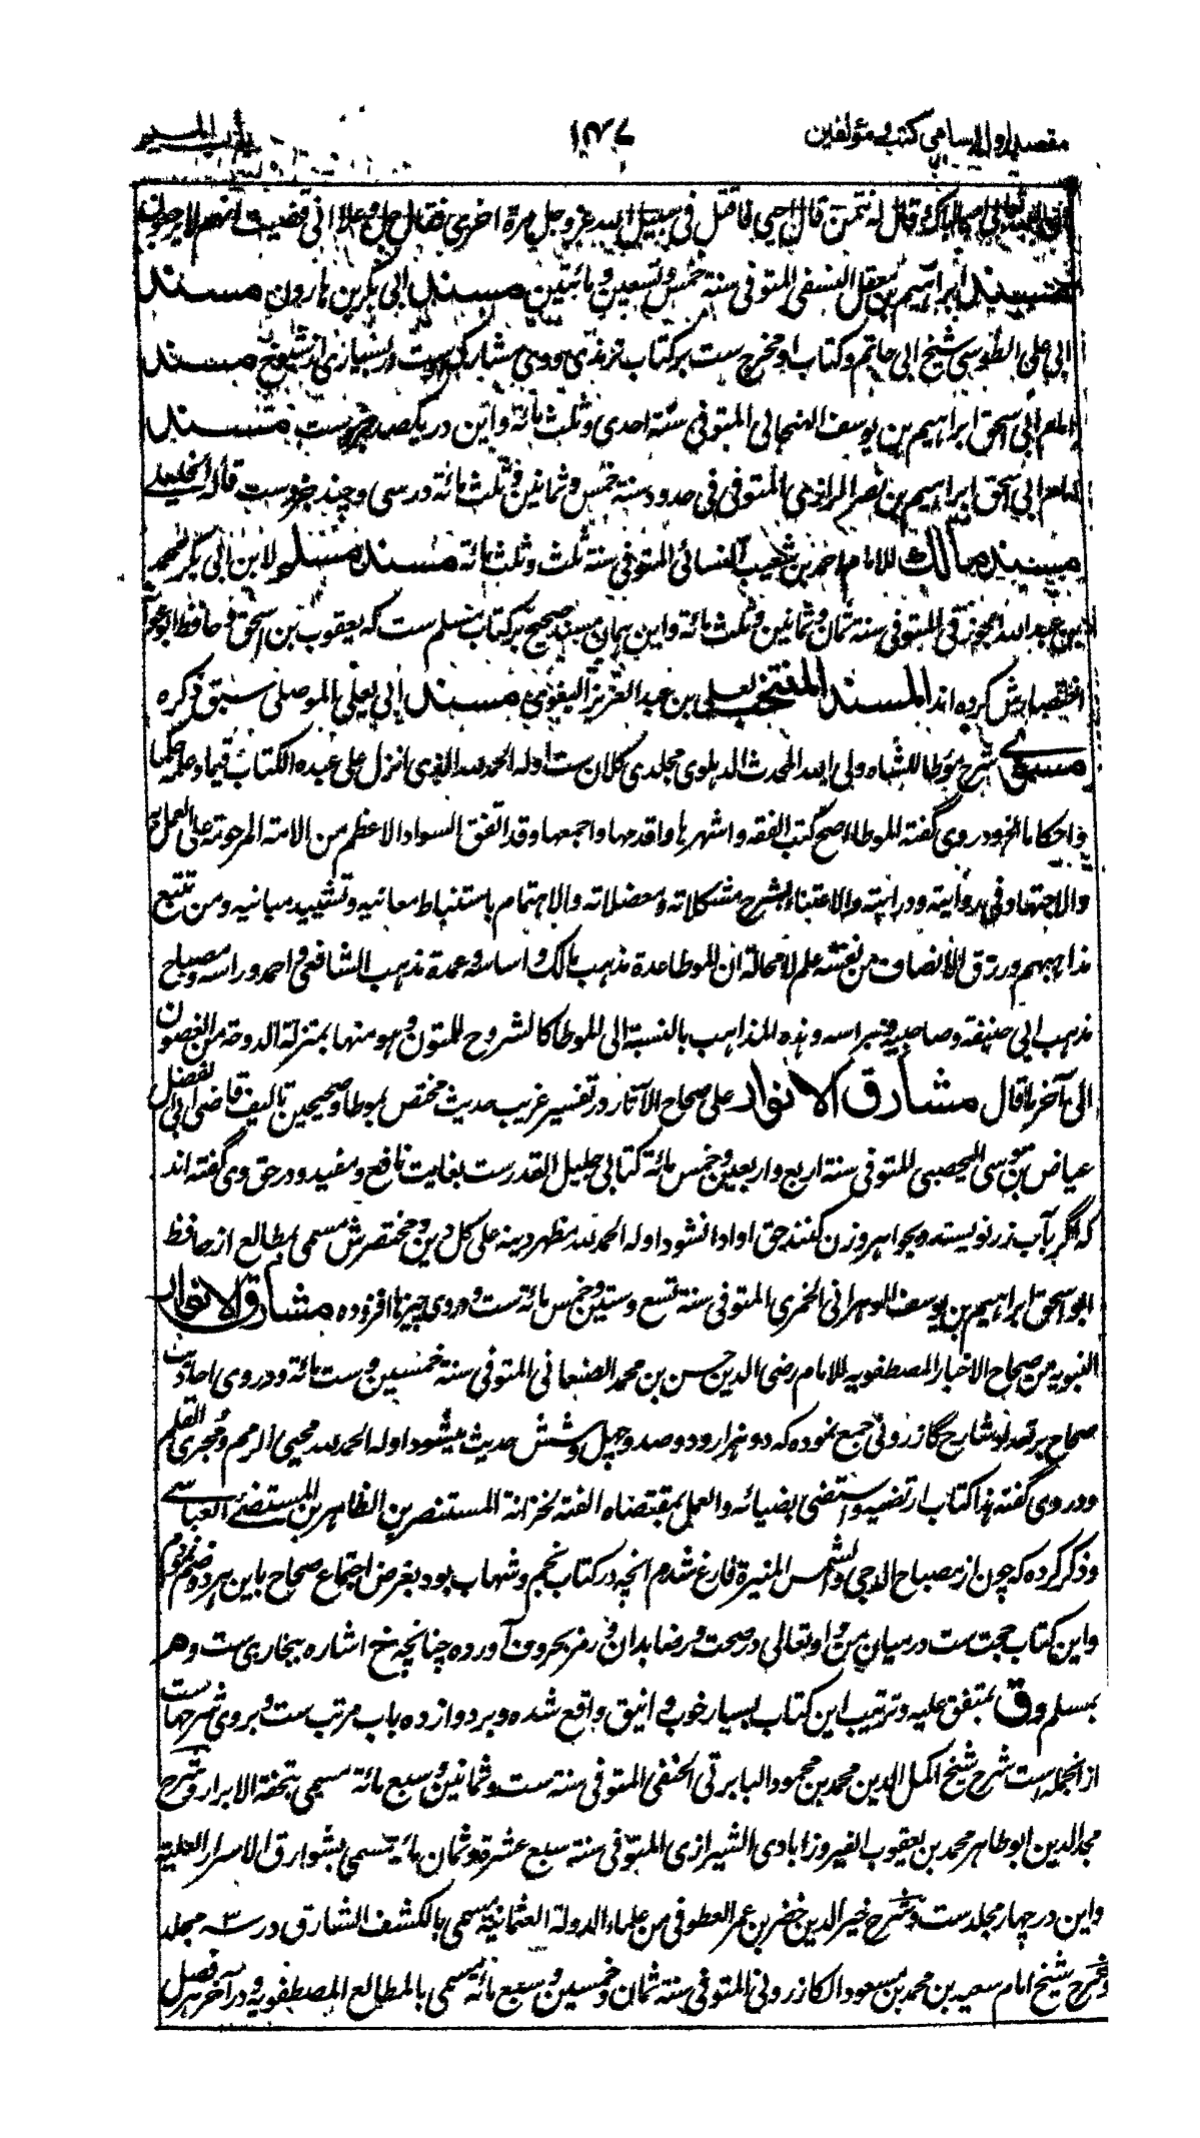 مقصد اول در اسامی کتب و مؤلفین ۱۴۷
الله تعالی احیی اباک وقال له تمن قال احیی فاقتل فی سبیل الله عز وجل مرة اخری فقال جل وعلا انی قضیت انهم لا یرجعون
مسند ابراهیم بن معقل النسفی المتوفی سنة خمس وتسعین ومائتین مسند ابی بکر بن هارون مسند
ابی علی الطوسی شیخ ابی حاتم وکتاب او مخرج ست بر کتاب ترمذی ووی مشارک اوست در بسیاری از شیوخ مسند
امام ابی اسحق ابراهیم بن یوسف الهنجانی المتوفی سنة احدی وثلث مائة واین در یکصد جزو ست مسند
امام ابی اسحق ابراهیم بن نصر الرازی المتوفی فی حدود سنة خمس وثمانین وثلث مائة در سی و چند جزوست قاله الخلیلی
مسند مالک للامام احمد بن شعیب النسائی المتوفی سنة ثلث وثلث مائة مسند مسلم لابن ابی بکر محمد
بن عبد الله الجوزقی المتوفی سنة ثمان وثمانین وثلث مائة واین همان مسند صحیح بر کتاب مسلم ست که یعقوب بن اسحق و حافظ ابو عوانه
اختصارش کرده اند المسند المنتخب لعلی بن عبد العزیز البغوی مسند ابی یعلی الموصلی سبق ذکره
مسوی شرح موطا للشاه ولی الله المحدث الدهلوی مجلدی کلان ست اوله الحمد لله الذی انزل علی عبده الکتاب قیما وعلمه حکما
واحکاما الخ ودر وی گفته الموطا اصح کتب الفقه واشهرها واقدمها واجمعها وقد اتفق السواد الاعظم من الامة المرحومة علی العمل به
والاجتهاد فی روایته ودرایته والاعتناء بشرح مشکلاته ومعضلاته والاهتمام باستنباط معانیه وتشیید مبانیه ومن تتبع
مذاهبهم ورزق الانصاف من نفسه علم لا محالة ان الموطا عدة مذهب مالک واساسه وعمدة مذهب الشافعی واحمد وراسه ومصباح
مذهب ابی حنیفه وصاحبیه ونبراسه وهذه المذاهب بالنسبة الی الموطا کالشروح للمتون وهو منها بمنزلة الدوحة من الغصون
الی آخر ما قال مشارق الانوار علی صحاح الآثار در تفسیر غریب حدیث مختص بموطا وصحیحین تالیف قاضی ابی الفضل
عیاض بن موسی الیحصبی المتوفی سنة اربع واربعین وخمس مائة کتابی جلیل القدر ست بغایت نافع ومفید ودر حق وی گفته اند
که اگر بآب زر نویسند و بجواهر وزن کنند حق او ادا نشود اوله الحمد لله مظهر دینه علی کل دین ومختصرش مسمی بمطالع از حافظ
ابو اسحق ابراهیم بن یوسف الوهرانی الحمزی المتوفی سنة تسع وستین وخمس مائة ست ودر وی چیزها افزوده مشارق الانوار
النبویه من صحاح الاخبار المصطفویه للامام رضی الدین حسن بن محمد الصنعانی المتوفی سنة خمسین وست مائة ودر وی احادیث
صحاح بر تعداد شارح گازرونی جمع نموده که دو هزار ودو صد وچهل وشش حدیث میشود اوله الحمد لله محیی الرمم ومجری القلم
ودر وی گفته هذا کتاب ارتضیه واستضئ بضیائه والعمل بمقتضاه الفته لخزانة المستنصر بن الظاهر بن المستضئ العباسی
وذکر کرده که چون از مصباح الدجی والشمس المنیرة فارغ شدم آنچه در کتاب نجم وشهاب بود بغرض اجتماع صحاح باین هر دو ضم نمودم
واین کتاب حجت ست درمیان من و او تعالی در صحت ورضا بدان و رمز بحروف آورده چنانچه خ اشاره ببخاری ست و هر
بمسلم وق بمتفق علیه وترتیب این کتاب بسیار خوب و انیق واقع شده و بر دوازده باب مرتب ست و بروی شرحهاست
از انجمله است شرح شیخ اکمل الدین محمد بن محمود البابرتی الحنفی المتوفی سنة ست وثمانین وسبع مائة مسمی بتحفة الابرار وشرح
مجد الدین ابو طاهر محمد بن یعقوب الفیروزابادی الشیرازی المتوفی سنة سبع عشرة وثمان مائة مسمی بشوارق الاسرار العلیة
واین در چهار مجلد ست وشرح خیر الدین خضر بن عمر العطوفی من علماء الدولة العثمانیة مسمی بالکشف الشارق در سه مجلد
وشرح شیخ امام سعید بن محمد بن مسعود الکازرونی المتوفی سنة ثمان وخمسین وسبع مائة مسمی بالمطالع المصطفویه ودر آخر هر فصل